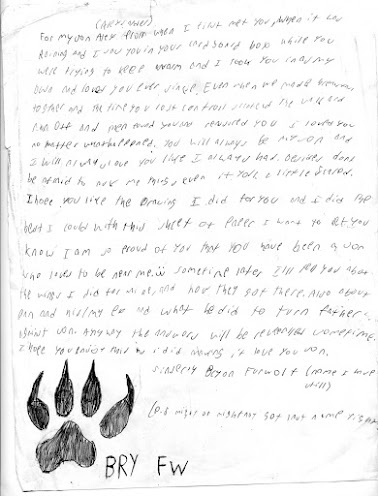 For my son Alex from when I first met you, when it was
Raining and I saw you in your card board box while you
were trying to keep warm and I took you in as my
own and loved you ever since. Even when we made brownies
together and the time you lost control and
Ran off and men found you and I loved you
no matter what happened. You will always be my son and
I will always love you like I always had. Besides don't
be afraid to ask me things even if you're a little scared.
I hope you like the drawing I did for you and I did the
best I could with this sheet of paper I want to let you
know I am so proud of you that you have been a son
who loves to be near me. sometime later I'll tell you about
the wings I did for and how they got there. Also about
and his and what he did to turn father
against son. Anyway the answers will be revealed sometime.
I hope you enjoy this as I did making it love you son.
sincerly Bryon Furwolf (name I have
still)
(or might or might not got that name right)
BRY FW